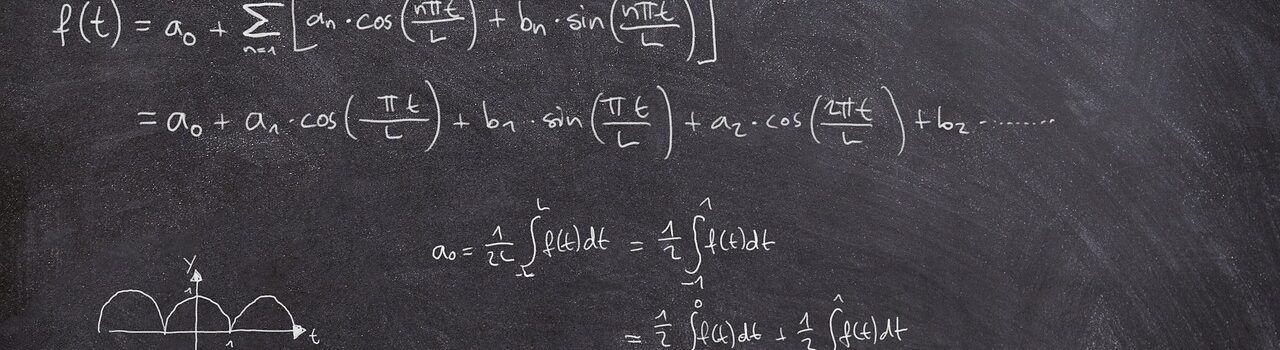 f(t) = a₀ + ∑ₙ₌₁ [aₙ · cos(nπt/L) + bₙ · sin(nπt/L)]
= a₀ + a₁ · cos(πt/L) + b₁ · sin(πt/L) + a₂ · cos(2πt/L) + b₂ ·········
a₀ = 1/2L ∫₋L^L f(t)dt = 1/2 ∫₋₁^1 f(t)dt
y
1
t
1
= 1/2 ∫^0 f(t)dt + 1/2 ∫^1 f(t)dt